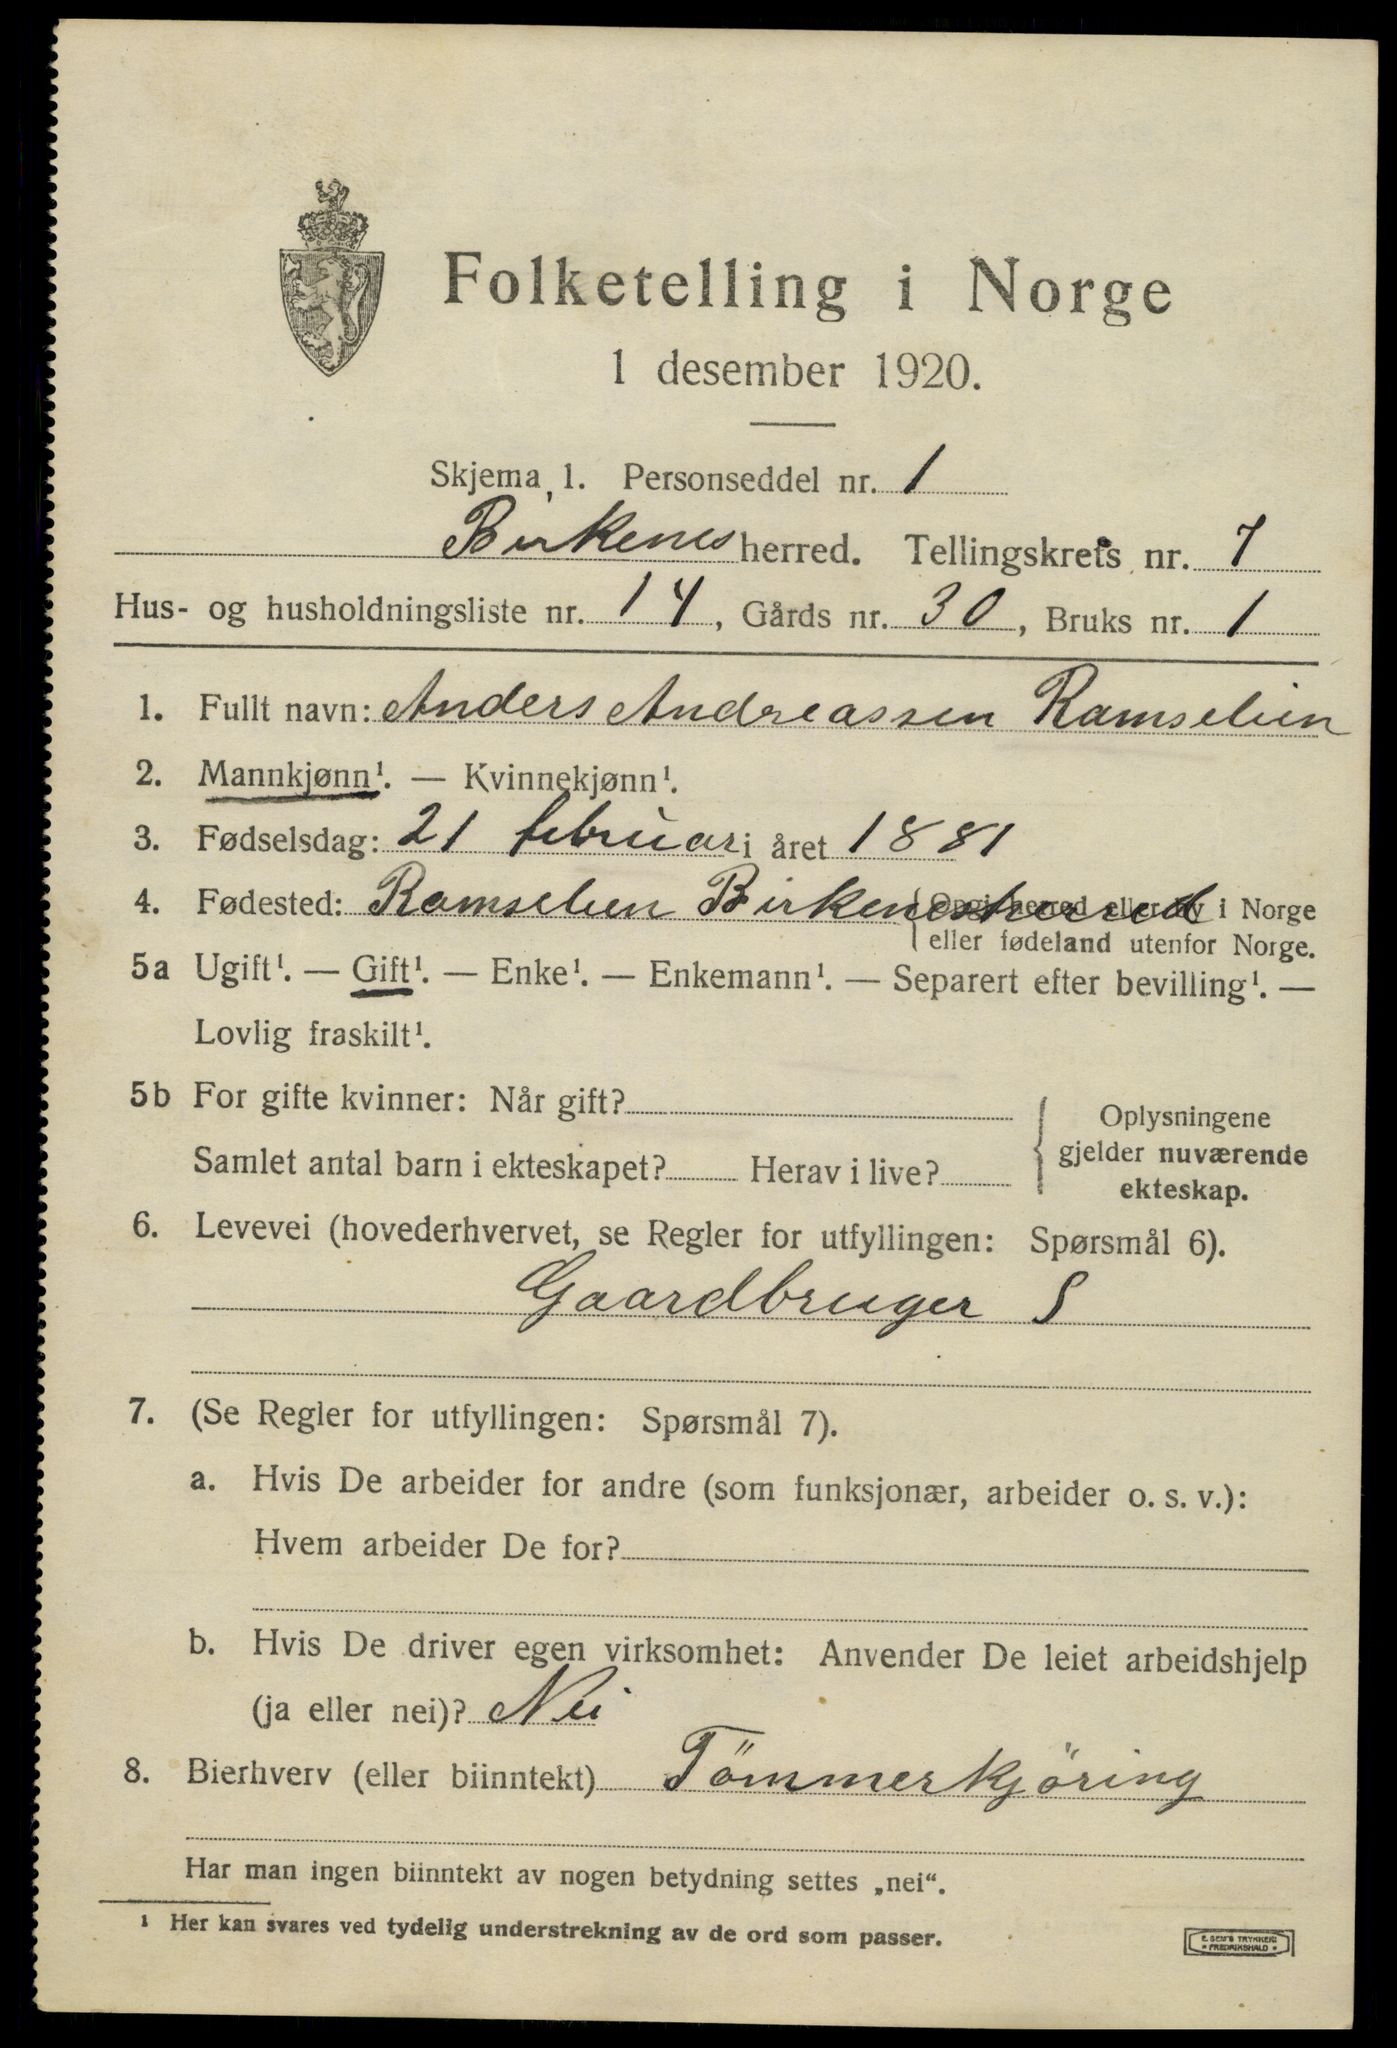 Folketelling i Norge
1 desember 1920.
Skjema 1. Personseddel nr. 1
Birkenes herred. Tellingskrets nr. 7
Hus- og husholdningsliste nr. 14, Gårds nr. 30, Bruks nr. 1
1. Fullt navn: Anders Andreassen Ramselien
2. Mannkjønn¹. — Kvinnekjønn¹.
3. Fødselsdag: 21 februar i året 1881
4. Fødested: Ramselien Birkenesherred {Opgi herred eller by i Norge
eller fødeland utenfor Norge.
5a Ugift¹. — Gift¹. — Enke¹. — Enkemann¹. — Separert efter bevilling¹. —
Lovlig fraskilt¹.
5b For gifte kvinner: Når gift?
Samlet antal barn i ekteskapet? Herav i live?
Oplysningene
gjelder nuværende
ekteskap.
6. Levevei (hovederhvervet, se Regler for utfyllingen: Spørsmål 6).
Gaardbruger S
7. (Se Regler for utfyllingen: Spørsmål 7).
a. Hvis De arbeider for andre (som funksjonær, arbeider o. s. v.):
Hvem arbeider De for?
b. Hvis De driver egen virksomhet: Anvender De leiet arbeidshjelp
(ja eller nei)? Nei
8. Bierhverv (eller biinntekt) Tömmerkjöring
Har man ingen biinntekt av nogen betydning settes „nei“.
¹ Her kan svares ved tydelig understrekning av de ord som passer.
E. SEM'S TRYKKERI
* FREDRIKSHALD *